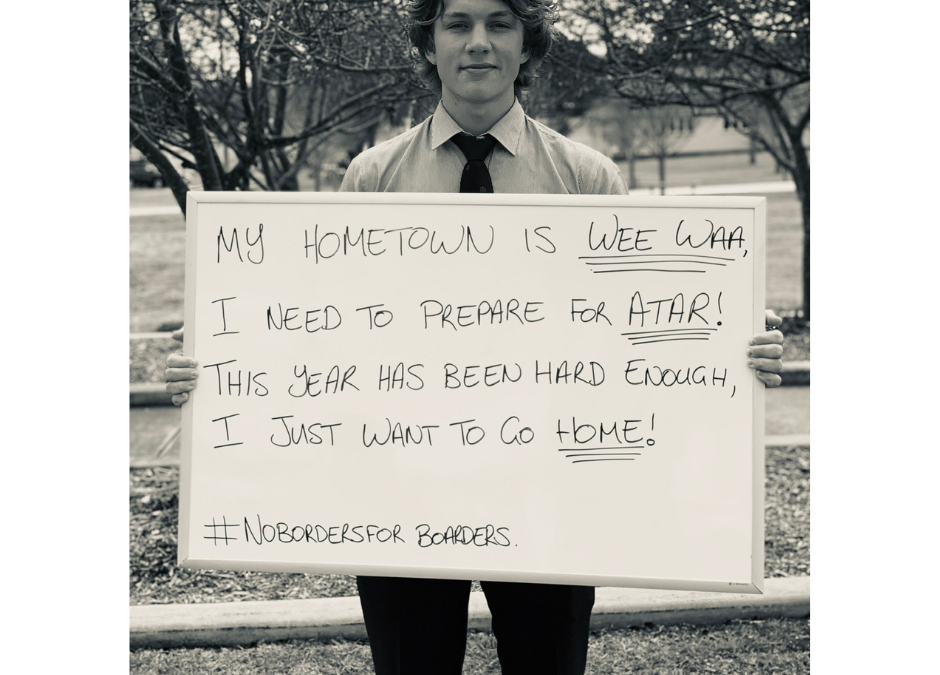 MY HOMETOWN IS WEE WAA,
I NEED TO PREPARE FOR ATAR!
THIS YEAR HAS BEEN HARD ENOUGH,
I JUST WANT TO GO HOME!
#NOBORDERSFOR BOARDERS.